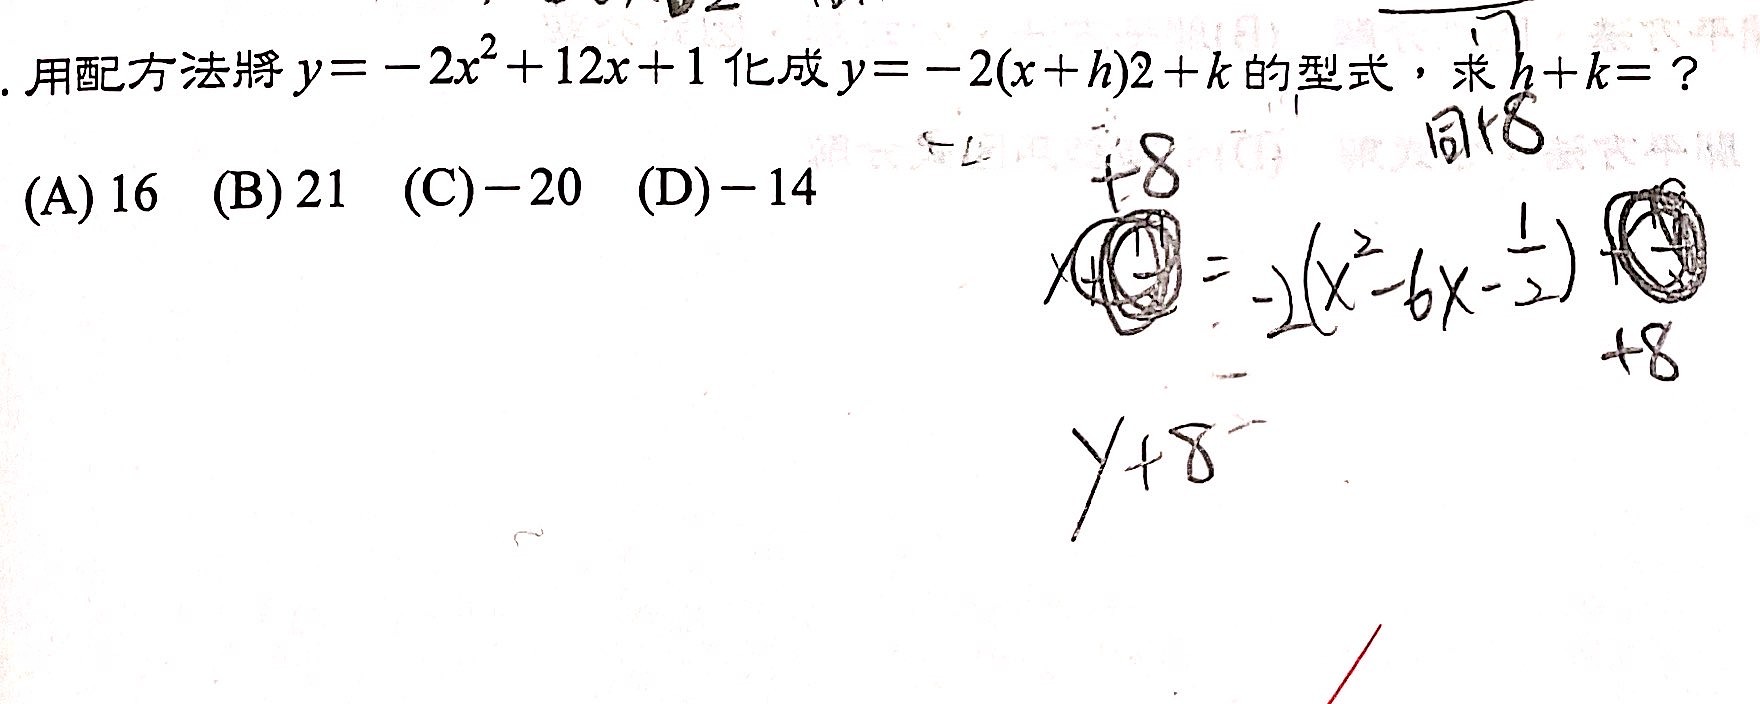 . 用配方法將 y=－2x²＋12x＋1 化成 y=－2(x＋h)2＋k 的型式，求 h＋k=？
同+8
+8
(A) 16 (B) 21 (C)－20 (D)－14
= -2(x²-6x-1/2)
+8
y+8